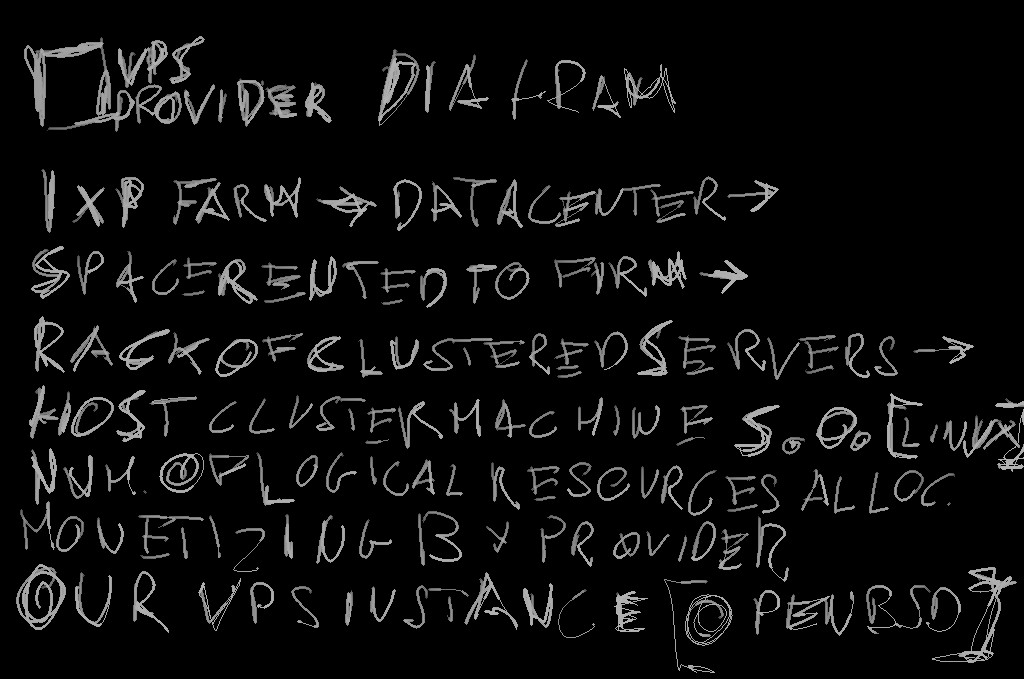 VPS
PROVIDER DIAGRAM
IXP FARM → DATACENTER →
SPACE RENTED TO FIRM →
RACK OF CLUSTERED SERVERS →
HOST CLUSTER MACHINE S.O. [LINUX]
NUM. OF LOGICAL RESOURCES ALLOC.
MONETIZING BY PROVIDER
OUR VPS INSTANCE [OPENBSD]